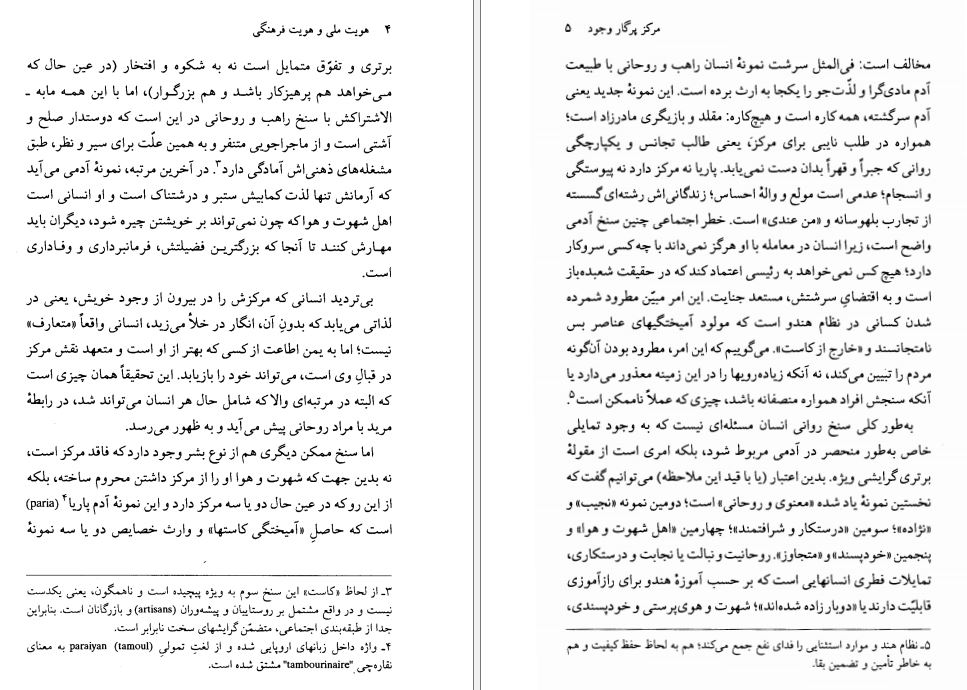 ۴ هویت ملی و هویت فرهنگی
برتری و تفوّق متمایل است نه به شکوه و افتخار (در عین حال که
می‌خواهد هم پرهیزکار باشد و هم بزرگوار)، اما با این همه مابه ـ
الاشتراکش با سنخ راهب و روحانی در این است که دوستدار صلح و
آشتی است و از ماجراجویی متنفر و به همین علّت برای سیر و نظر، طبق
مشغله‌های ذهنی‌اش آمادگی دارد۳. در آخرین مرتبه، نمونهٔ آدمی می‌آید
که آرمانش تنها لذت کمابیش ستبر و درشتناک است و او انسانی است
اهل شهوت و هوا که چون نمی‌تواند بر خویشتن چیره شود، دیگران باید
مهارش کنند تا آنجا که بزرگترین فضیلتش، فرمانبرداری و وفاداری
است.
بی‌تردید انسانی که مرکزش را در بیرون از وجود خویش، یعنی در
لذاتی می‌یابد که بدونِ آن، انگار در خلأ می‌زید، انسانی واقعاً «متعارف»
نیست؛ اما به یمن اطاعت از کسی که بهتر از او است و متعهد نقش مرکز
در قبالِ وی است، می‌تواند خود را بازیابد. این تحقیقاً همان چیزی است
که البته در مرتبه‌ای والا که شامل حال هر انسان می‌تواند شد، در رابطهٔ
مرید با مراد روحانی پیش می‌آید و به ظهور می‌رسد.
اما سنخ ممکن دیگری هم از نوع بشر وجود دارد که فاقد مرکز است،
نه بدین جهت که شهوت و هوا او را از مرکز داشتن محروم ساخته، بلکه
از این رو که در عین حال دو یا سه مرکز دارد و این نمونهٔ آدم پاریا۴ (paria)
است که حاصلِ «آمیختگی کاستها» و وارث خصایص دو یا سه نمونهٔ
۳ـ از لحاظ «کاست» این سنخ سوم به ویژه پیچیده است و ناهمگون، یعنی یکدست
نیست و در واقع مشتمل بر روستاییان و پیشه‌وران (artisans) و بازرگانان است. بنابراین
جدا از طبقه‌بندی اجتماعی، متضمّن گرایشهای سخت نابرابر است.
۴ـ واژه داخل زبانهای اروپایی شده و از لغتِ تمولیِ (tamoul) paraiyan به معنای
نقاره‌چی "tambourinaire" مشتق شده است.
مرکز پرگار وجود ۵
مخالف است: فی‌المثل سرشت نمونهٔ انسان راهب و روحانی با طبیعت
آدم مادی‌گرا و لذّت‌جو را یکجا به ارث برده است. این نمونهٔ جدید یعنی
آدم سرگشته، همه کاره است و هیچ‌کاره: مقلد و بازیگری مادرزاد است؛
همواره در طلب نایبی برای مرکز، یعنی طالب تجانس و یکپارچگی
روانی که جبراً و قهراً بدان دست نمی‌یابد. پاریا نه مرکز دارد نه پیوستگی
و انسجام؛ عدمی است مولع و والهٔ احساس؛ زندگانی‌اش رشته‌ای گسسته
از تجارب بلهوسانه و «من عندی» است. خطر اجتماعی چنین سنخ آدمی
واضح است، زیرا انسان در معامله با او هرگز نمی‌داند با چه کسی سروکار
دارد؛ هیچ کس نمی‌خواهد به رئیسی اعتماد کند که در حقیقت شعبده‌باز
است و به اقتضایِ سرشتش، مستعد جنایت. این امر مبیّن مطرود شمرده
شدن کسانی در نظام هندو است که مولود آمیختگیهای عناصر بس
نامتجانسند و «خارج از کاست». می‌گوییم که این امر، مطرود بودن آن‌گونه
مردم را تبیین می‌کند، نه آنکه زیاده‌رویها را در این زمینه معذور می‌دارد یا
آنکه سنجش افراد همواره منصفانه باشد، چیزی که عملاً ناممکن است۵.
به‌طور کلی سنخ روانی انسان مسئله‌ای نیست که به وجود تمایلی
خاص به‌طور منحصر در آدمی مربوط شود، بلکه امری است از مقولهٔ
برتری گرایشی ویژه. بدین اعتبار (یا با قید این ملاحظه) می‌توانیم گفت که
نخستین نمونهٔ یاد شده «معنوی و روحانی» است؛ دومین نمونه «نجیب» و
«نژاده»؛ سومین «درستکار و شرافتمند»؛ چهارمین «اهل شهوت و هوا» و
پنجمین «خودپسند» و «متجاوز». روحانیت و نبالت یا نجابت و درستکاری،
تمایلات فطری انسانهایی است که بر حسب آموزهٔ هندو برای رازآموزی
قابلیّت دارند یا «دوبار زاده شده‌اند»؛ شهوت و هوی‌پرستی و خودپسندی،
۵ـ نظام هند و موارد استثنایی را فدای نفع جمع می‌کند؛ هم به لحاظ حفظ کیفیت و هم
به خاطر تأمین و تضمین بقا.